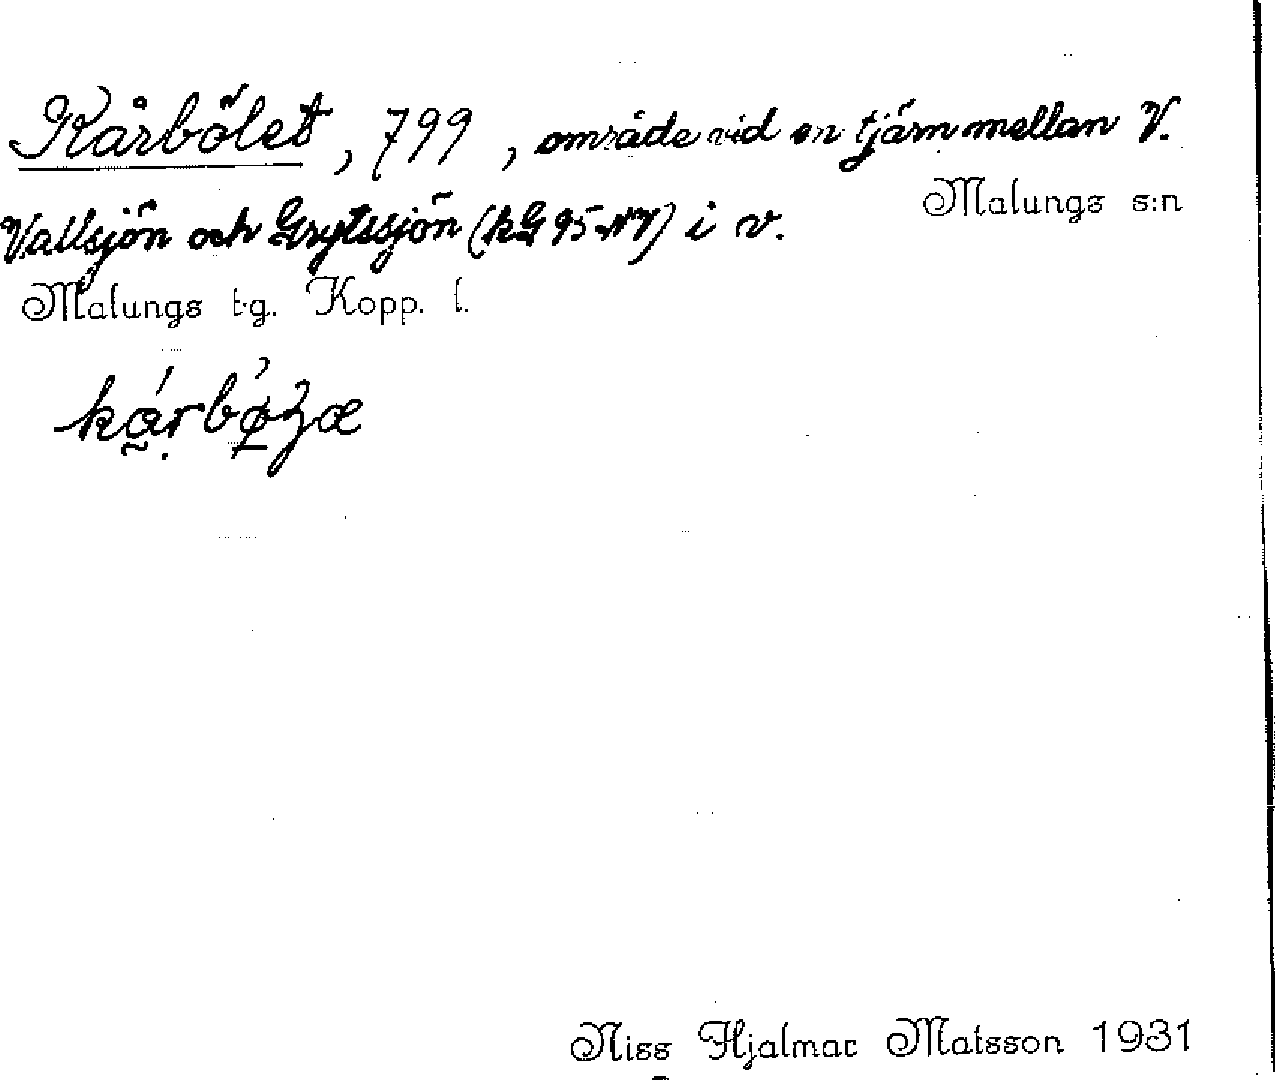 Kårbölet, 799, område vid en tjärn mellan V.
Malungs s:n
Vallsjön och Grytssjön (kG 95 NV) i v.
Malungs tg. Kopp. l.
Niss Hjalmar Matsson 1931